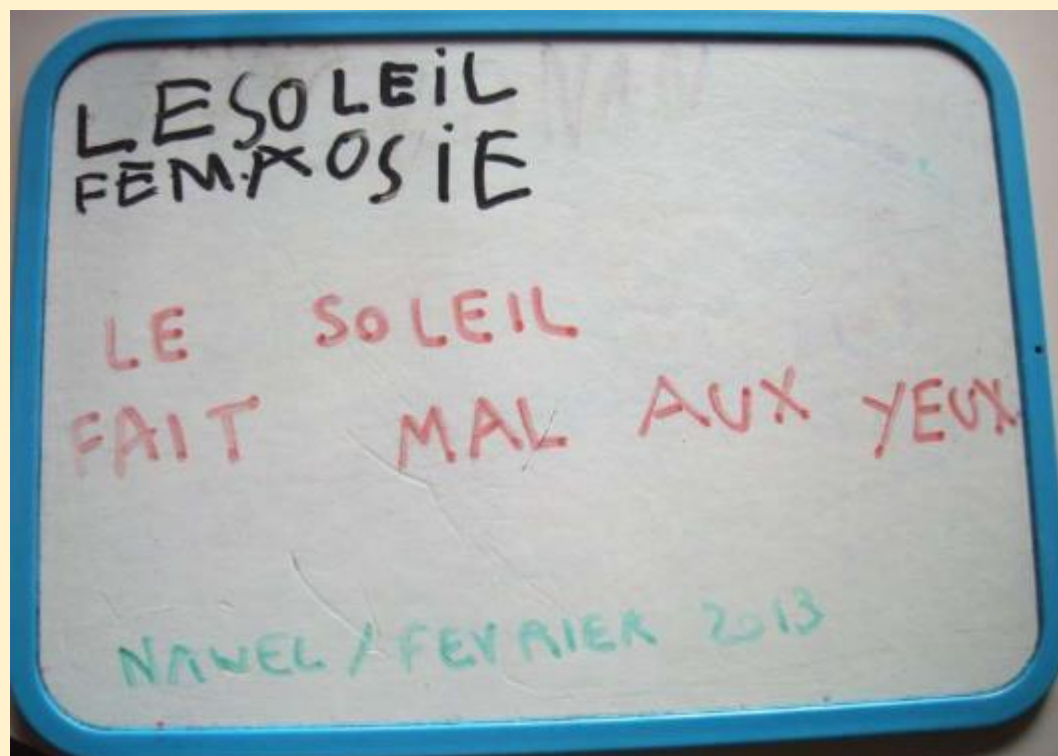 LESOLEIL
FEMAOSIE
LE SOLEIL
FAIT MAL AUX YEUX
NAWEL / FEVRIER 2013